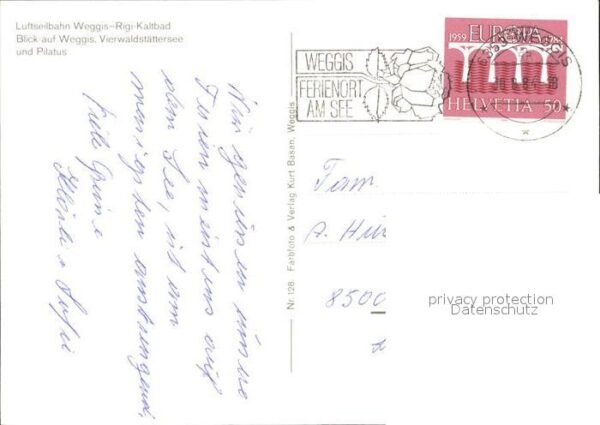 Luftseilbahn Weggis–Rigi-Kaltbad
Blick auf Weggis, Vierwaldstättersee
und Pilatus
Wir genießen unsere
Ferien meistens auf
dem See, ist am
wenigsten anstrengend.
Viele Grüße
WEGGIS
FERIENORT
AM SEE
1959 EUROPA 1984
HELVETIA 50
WEGGIS
Nr. 128. Farbfoto & Verlag Kurt Basan, Weggis
Fam.
A.
8500
privacy protection
Datenschutz